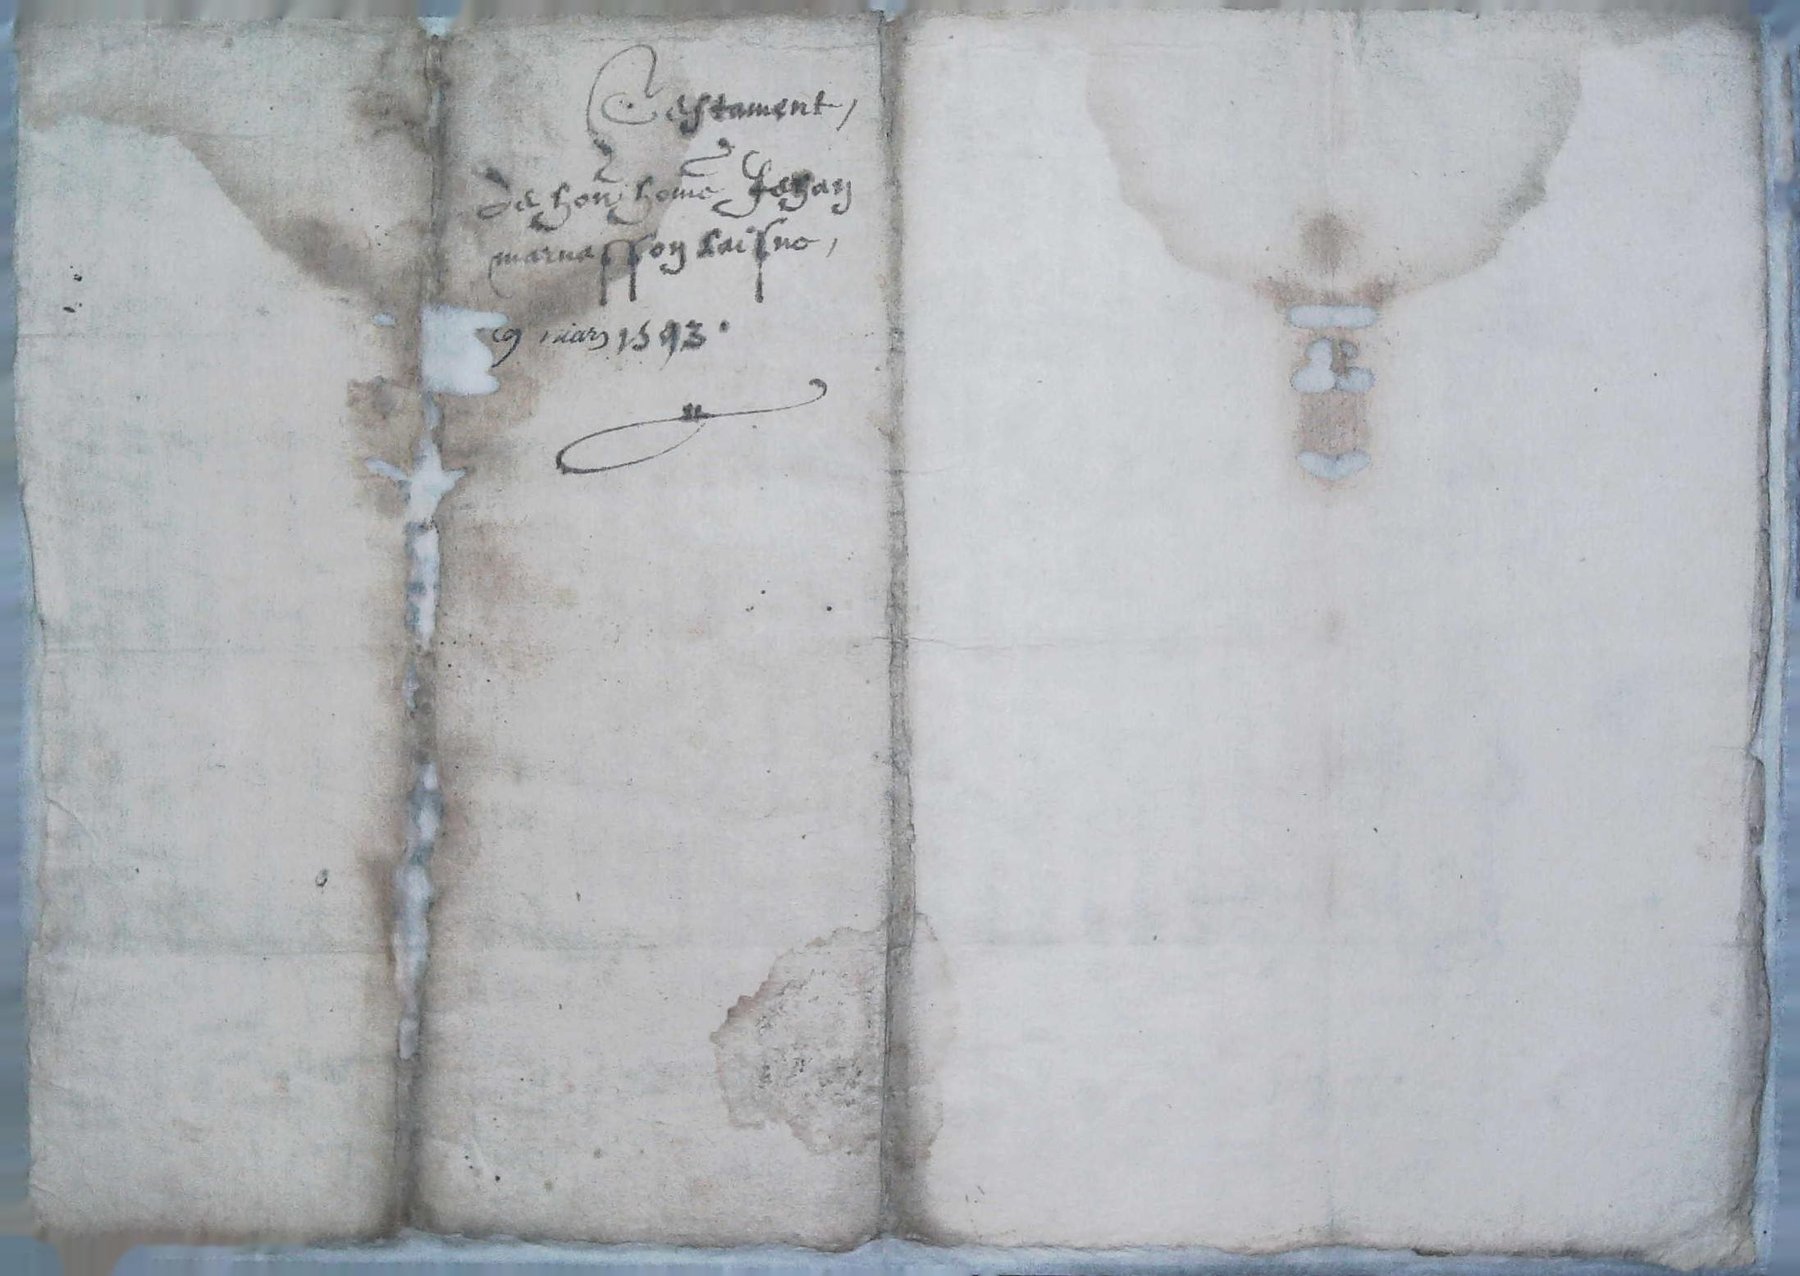 Testament,
de hon̄ home Jehan
marnasson laisne,
9 mars 1593.